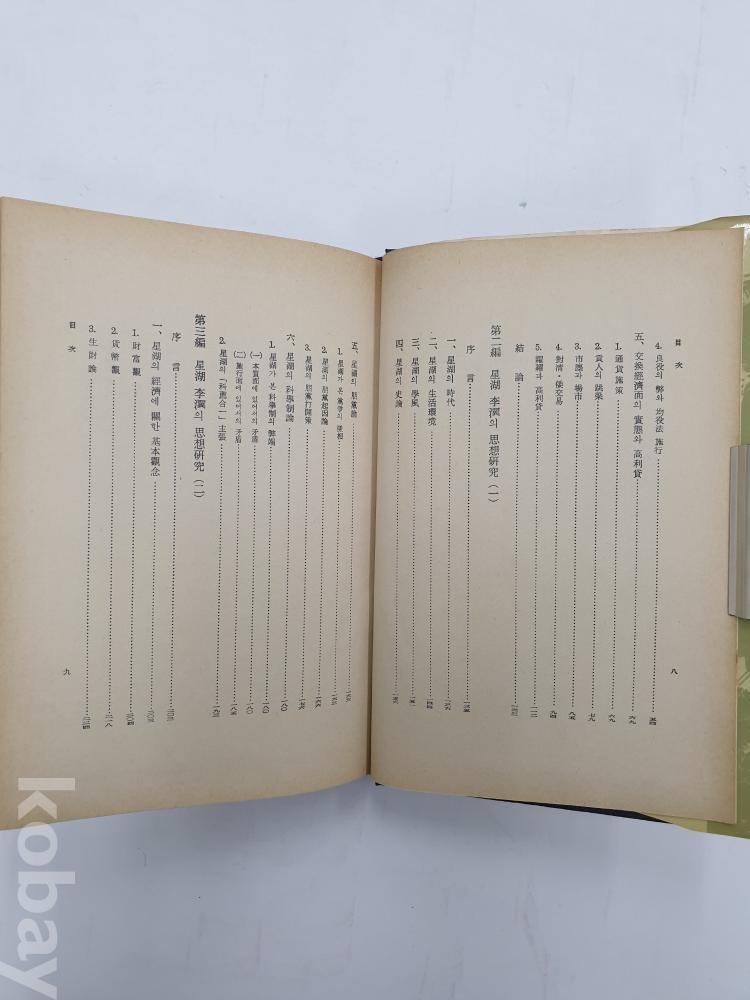 目 次
4. 良役의 弊와 均役法 施行 五四
五、交換經濟面의 實態와 高利貸 六九
1. 通貨施策 六九
2. 貢人의 跳梁 七九
3. 市廛과 場市 八五
4. 對清・倭交易 九四
5. 糴糶과 高利貸
結 論
第二編 星湖 李瀷의 思想研究 (一)
序 言 一三五
一、星湖의 時代 一三六
二、星湖의 生活環境 一四四
三、星湖의 學風 一五一
四、星湖의 史論
八
五、星湖의 朋黨論
1. 星湖가 본 黨爭의 樣相
2. 星湖의 朋黨起因論
3. 星湖의 朋黨打開策
六、星湖의 科擧制論 一八〇
1. 星湖가 본 科擧制의 弊端 一八〇
(一) 本質面에 있어서의 矛盾 一八〇
(二) 施行面에 있어서의 矛盾 一八五
2. 星湖의 「科薦合一」主張
第三編 星湖 李瀷의 思想研究 (二)
序 言
一、星湖의 經濟에 關한 基本觀念
1. 財富觀 二〇四
2. 貨幣觀 二一八
3. 生財論
目 次
九
kobay